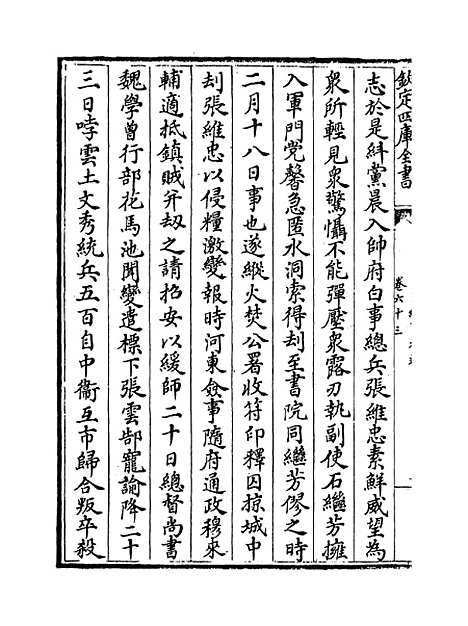 欽定四庫全書
卷六十三
志於是糾黨晨入帥府白事總兵張維忠素鮮威望為
衆所輕見衆驚懾不能彈壓衆露刃執副使石繼芳擁
入軍門党馨急匿水洞索得刦至書院同繼芳僇之時
二月十八日事也遂縱火焚公署收符印釋囚掠城中
刦張維忠以侵糧激變報時河東僉事隨府通政穆來
輔適抵鎮賊并刼之請招安以緩師二十日總督尚書
魏學曾行部花馬池聞變遣標下張雲郜寵諭降二十
三日哱雲土文秀統兵五百自中衞互市歸合叛卒殺